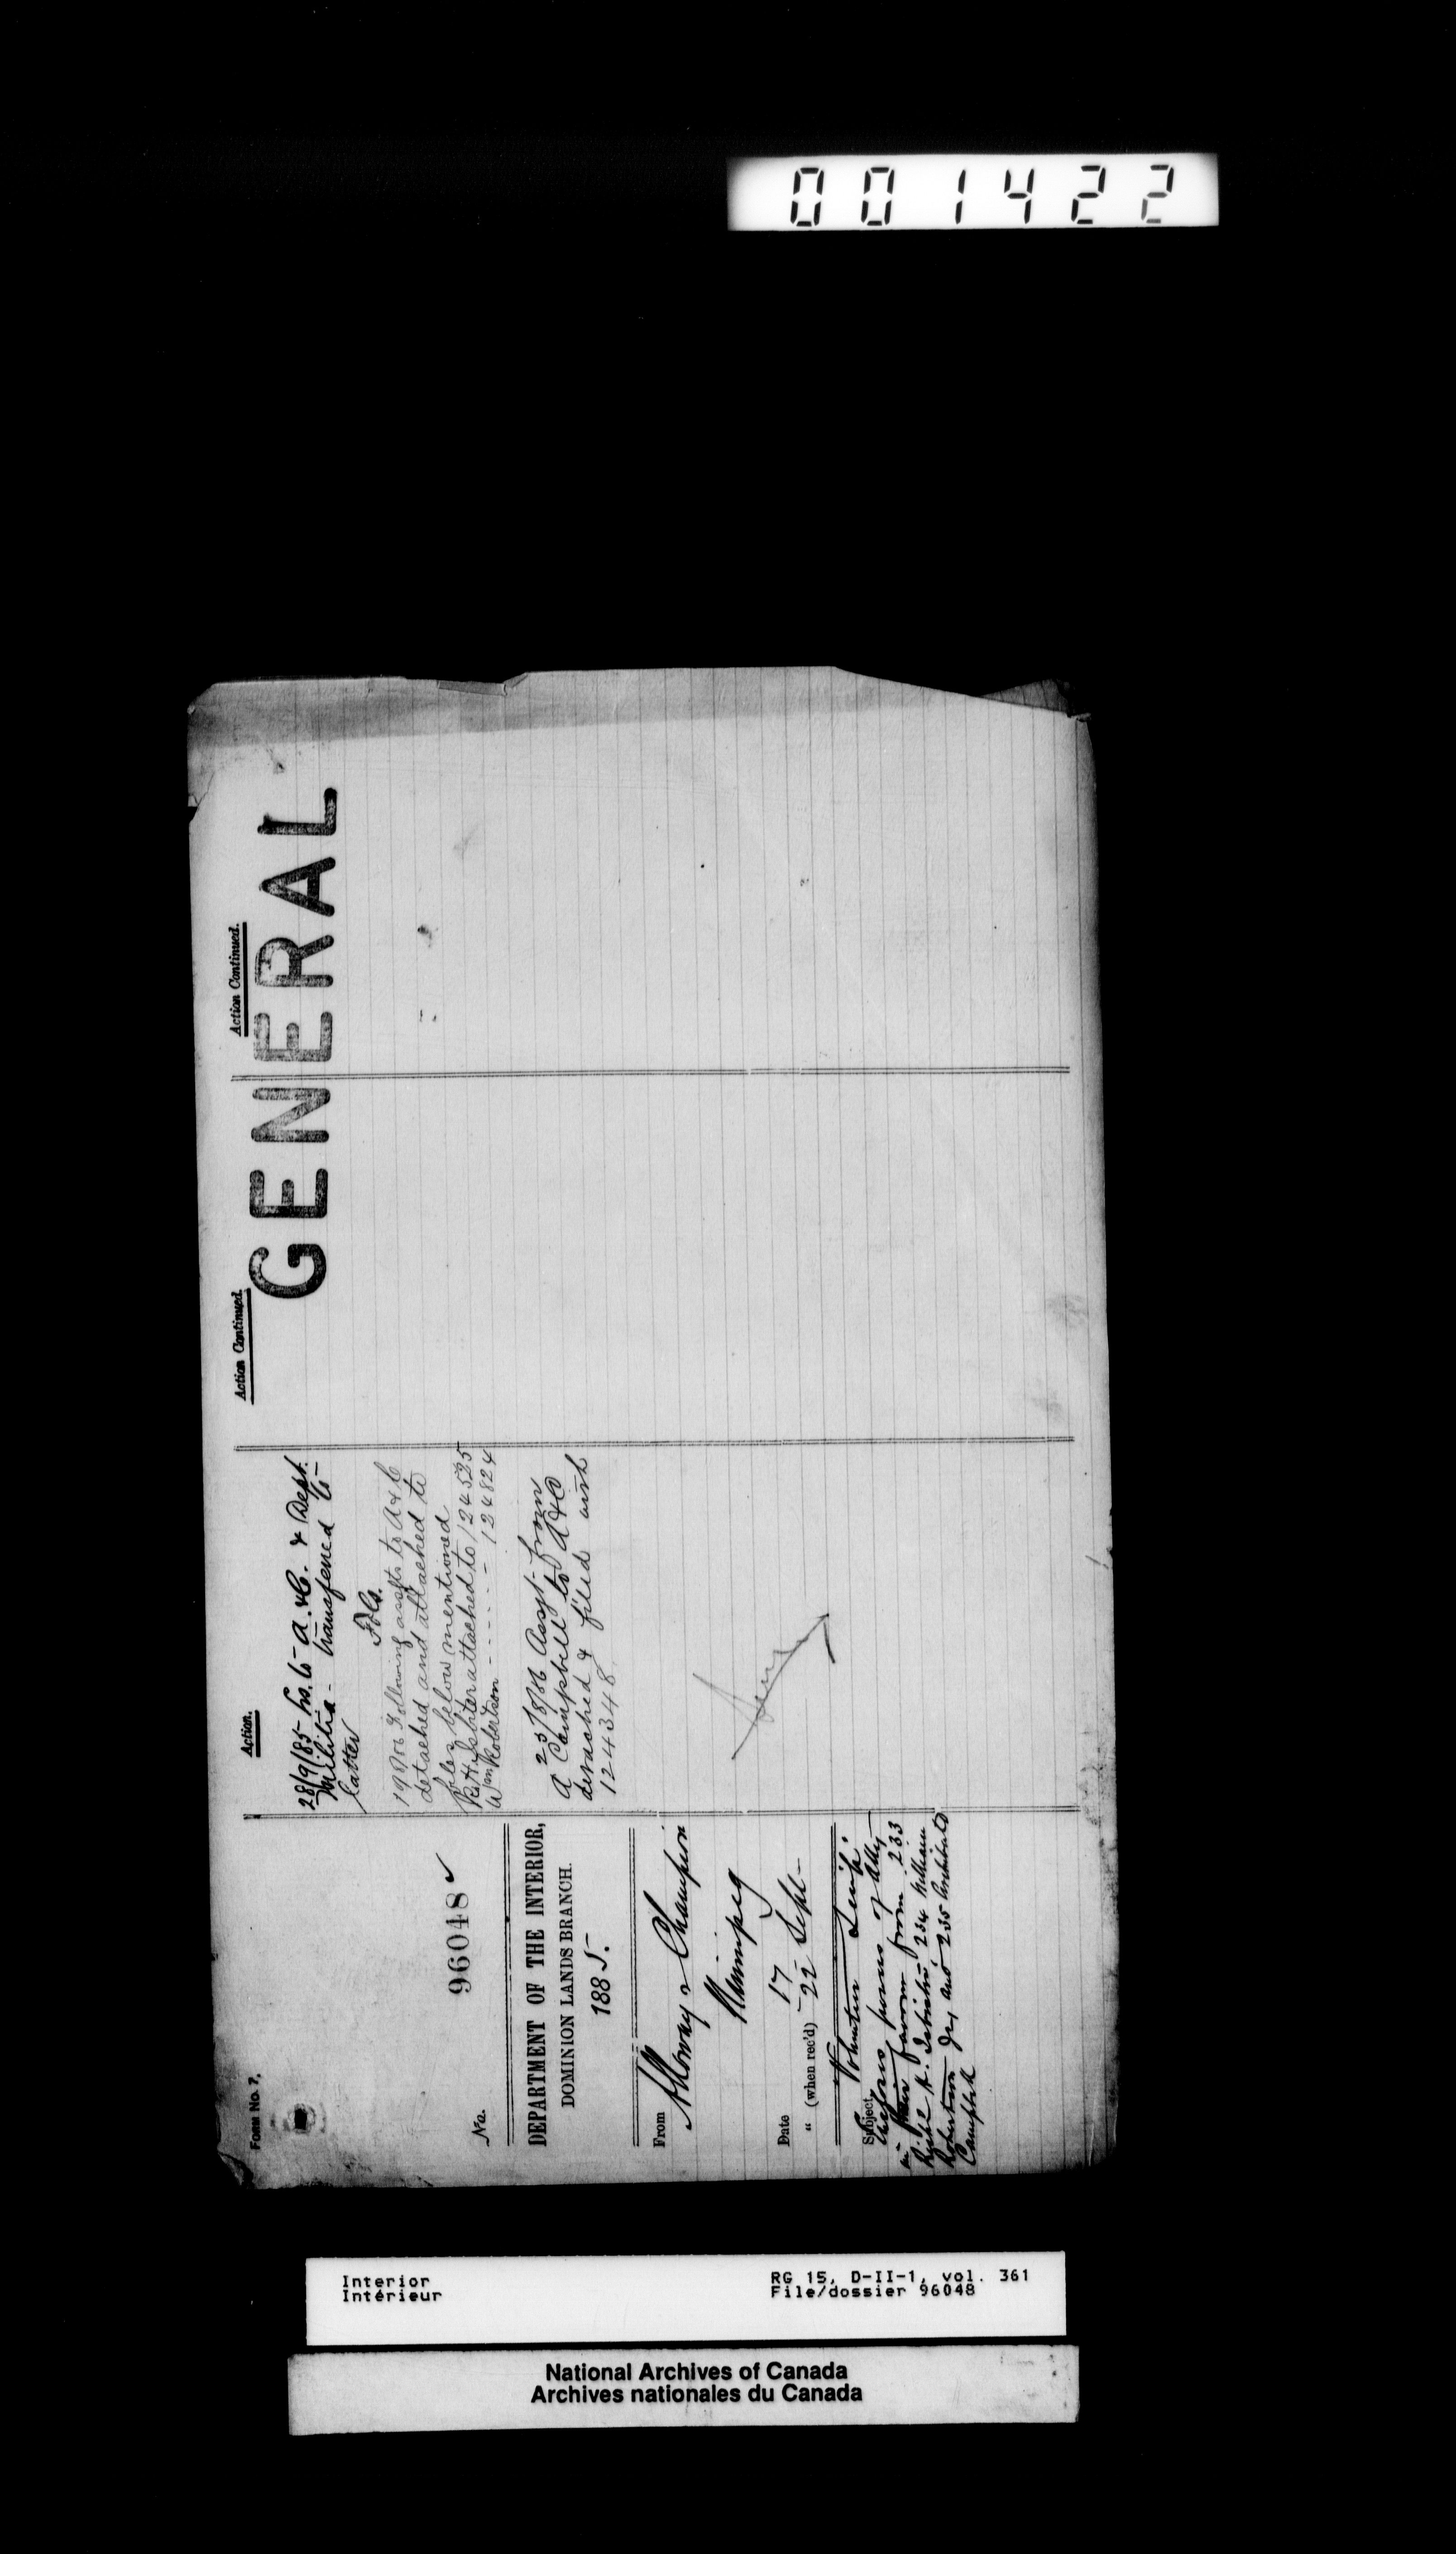 001422
FORM No. 7.
No. 96048
DEPARTMENT OF THE INTERIOR,
DOMINION LANDS BRANCH.
1885.
From Alloway & Champion
Winnipeg
Date 17 Sept
" (when rec'd) 22
Subject,
Volunteer Scrip.
Encloses powers of Atty
in their favour from 233
234 William
Robertson and 235 Archibald
Campbell
Action.
28/9/85 to A. & C. & Dept.
Militia - transferred to
latter
Following assgts to A & C
detached and attached to
files below mentioned
attached to 124535
Wm Robertson - - - - - 124824
23/8/86 Assgt. from
A Campbell to A & C
detached & filed with
124348.
Action Continued.
Action Continued.
GENERAL
Interior
Intérieur
RG 15, D-II-1, vol. 361
File/dossier 96048
National Archives of Canada
Archives nationales du Canada